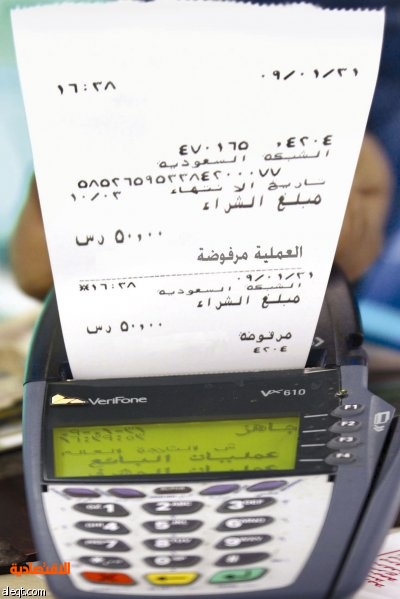 ٠٩/٠١/٢١ ١٦:٣٨
٠٤٢٠٤ ٤٧٠١٦٥
الشبكة السعودية
٥٨٥٢٦٥٩٥٢٢٨٤٢٠٠٠٠٧٧
تاريخ الانتهاء ١٠/٠٢
مبلغ الشراء
٥٠,٠٠ رس
العملية مرفوضة
٠٩/٠١/٢١
الشبكة السعودية ١٦:٣٨*
مبلغ الشراء
٥٠,٠٠ رس
مرفوضة
٤٢٠٤
VeriFone Vx610
جاهز
عمليات البائع
F1
F2
F3
F4
1 2 3
4 5 6
7 8 9
0 #
الاقتصادية
aleqt.com